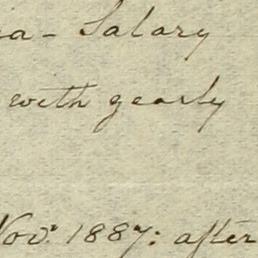 a - Salary
with yearly
Novr. 1887: after